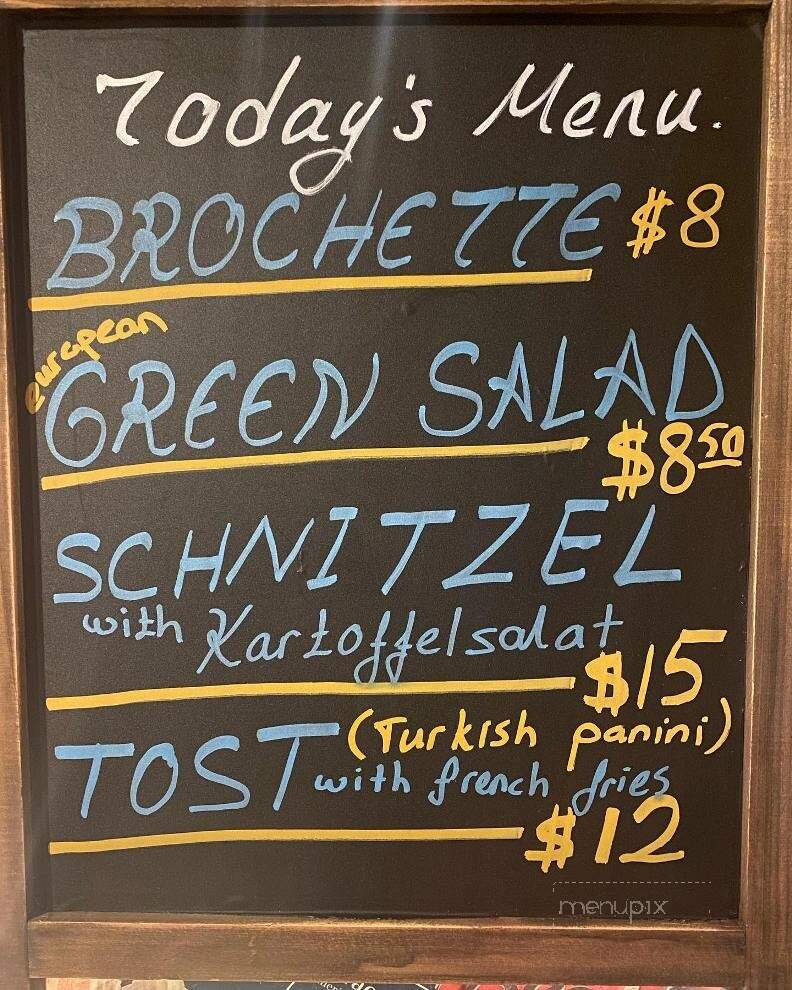 Today's Menu.
BROCHETTE $8
european
GREEN SALAD
$8 50
SCHNITZEL
with Kartoffelsalat
$15
TOST (Turkish panini)
with french fries
$12
menupix